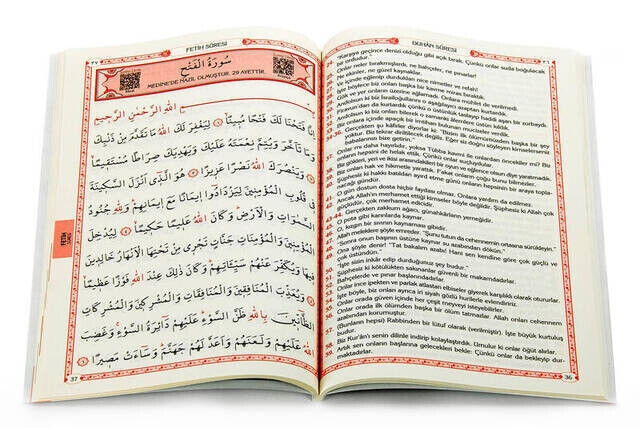 DUHÂN SÛRESİ
"Karaya geçince denizi olduğu gibi açık bırak. Çünkü onlar suda boğulacak
bir ordudur."
Onlar neler bırakmışlardı, ne bahçeler, ne pınarlar!
Ne ekinler, ne güzel konaklar.
Ve içinde eğlenip durdukları nice nimetler ve refah!
İşte böylece biz onları başka bir kavme miras bıraktık.
Gök ve yer onların üzerine ağlamadı. Onlara mühlet de verilmedi.
Andolsun ki biz İsrailoğullarını o aşağılayıcı azaptan kurtardık.
Firavun'dan da kurtardık çünkü o üstünlük taslayıp haddi aşan bir zorbaydı.
Andolsun ki biz onları bilerek o zamanki âlemlere üstün kıldık.
Biz onlara içinde apaçık bir imtihan bulunan mucizeler verdik.
34-36. Gerçekten şu kâfirler diyorlar ki: "Bizim ilk ölümümüzden başka bir şey
yoktur. Biz tekrar diriltilecek değiliz. Eğer siz doğru söyleyen kimselerseniz
babalarımızı bize getirin."
Onlar mı daha hayırlıdır, yoksa Tübba kavmi ile onlardan öncekiler mi? Biz
onların hepsini de helak ettik. Çünkü onlar suçluydular.
Biz gökleri, yeri ve ikisi arasındakileri bir oyun ve eğlence olsun diye yaratmadık.
Biz onları hak ve hikmetle yarattık. Fakat onların çoğu bunu bilmezler.
Şüphesiz ki hakkı batıldan ayırd etme günü onların hepsinin bir araya topla-
nacağı gündür.
O gün dostun dosta hiçbir faydası olmaz. Onlara yardım da edilmez.
Ancak Allah'ın merhamet ettiği kimseler böyle değildir. Şüphesiz ki Allah çok
güçlüdür, çok merhamet edicidir.
43-44. Gerçekten zakkum ağacı, günahkârların yemeğidir.
O pota gibi karınlarda kaynar.
O, kızgın bir sıvının kaynaması gibidir.
47. Allah meleklere şöyle emreder: "Şunu tutun da cehennemin ortasına sürükleyin."
48. "Sonra onun başının üstüne kaynar su azabından dökün."
49. Ona şöyle denir: "Tat bakalım azabı! Hani sen kendine göre çok güçlü ve
çok üstündün."
50. "İşte sizin inkâr edip durduğunuz şey budur."
51. Şüphesiz ki kötülükten sakınanlar güvenli bir makamdadırlar.
52. Bahçelerde ve pınar başlarındadırlar.
53. Onlar ince ipekten ve parlak atlastan elbiseler giyerek karşılıklı olarak otururlar.
54. İşte böyle, biz onları ayrıca iri siyah gözlü hurilerle evlendiririz.
55. Onlar orada güven içinde her çeşit meyveyi isteyebilirler.
56. Onlar orada ilk ölümden başka bir ölüm tatmazlar. Allah onları cehennem
azabından korumuştur.
57. (Bunların hepsi) Rabbinden bir lütuf olarak (verilmiştir). İşte büyük kurtuluş
budur.
58. Biz Kur'an'ı senin dilinle indirip kolaylaştırdık. Umulur ki onlar öğüt alırlar.
59. Artık sen onların başlarına gelecekleri bekle: Çünkü onlar da bekleyip dur-
maktadırlar.
36
FETİH SÛRESİ
٣٧
سُورَةُ الْفَتْحِ
MEDİNE'DE NAZİL OLMUŞTUR. 29 AYETTİR.
بِسْمِ اللّٰهِ الرَّحْمٰنِ الرَّحِيمِ
اِنَّا فَتَحْنَا لَكَ فَتْحًا مُبِينًاۙ لِيَغْفِرَ لَكَ اللّٰهُ مَا تَقَدَّمَ مِنْ ذَنْبِكَ
وَمَا تَاَخَّرَ وَيُتِمَّ نِعْمَتَهُ عَلَيْكَ وَيَهْدِيَكَ صِرَاطًا مُسْتَقِيمًاۙ
وَيَنْصُرَكَ اللّٰهُ نَصْرًا عَزِيزًا هُوَ الَّذِى اَنْزَلَ السَّكِينَةَ
فِى قُلُوبِ الْمُؤْمِنِينَ لِيَزْدَادُوا اِيمَانًا مَعَ اِيمَانِهِمْ وَلِلّٰهِ جُنُودُ
السَّمٰوَاتِ وَالْاَرْضِ وَكَانَ اللّٰهُ عَلِيمًا حَكِيمًاۙ لِيُدْخِلَ
الْمُؤْمِنِينَ وَالْمُؤْمِنَاتِ جَنَّاتٍ تَجْرِى مِنْ تَحْتِهَا الْاَنْهَارُ خَالِدِينَ
فِيهَا وَيُكَفِّرَ عَنْهُمْ سَيِّـَٔاتِهِمْ وَكَانَ ذٰلِكَ عِنْدَ اللّٰهِ فَوْزًا عَظِيمًاۙ
وَيُعَذِّبَ الْمُنَافِقِينَ وَالْمُنَافِقَاتِ وَالْمُشْرِكِينَ وَالْمُشْرِكَاتِ
الظَّٓانِّينَ بِاللّٰهِ ظَنَّ السَّوْءِ عَلَيْهِمْ دَٓائِرَةُ السَّوْءِ وَغَضِبَ
اللّٰهُ عَلَيْهِمْ وَلَعَنَهُمْ وَاَعَدَّ لَهُمْ جَهَنَّمَ وَسَٓاءَتْ مَصِيرًا
FETİH
37